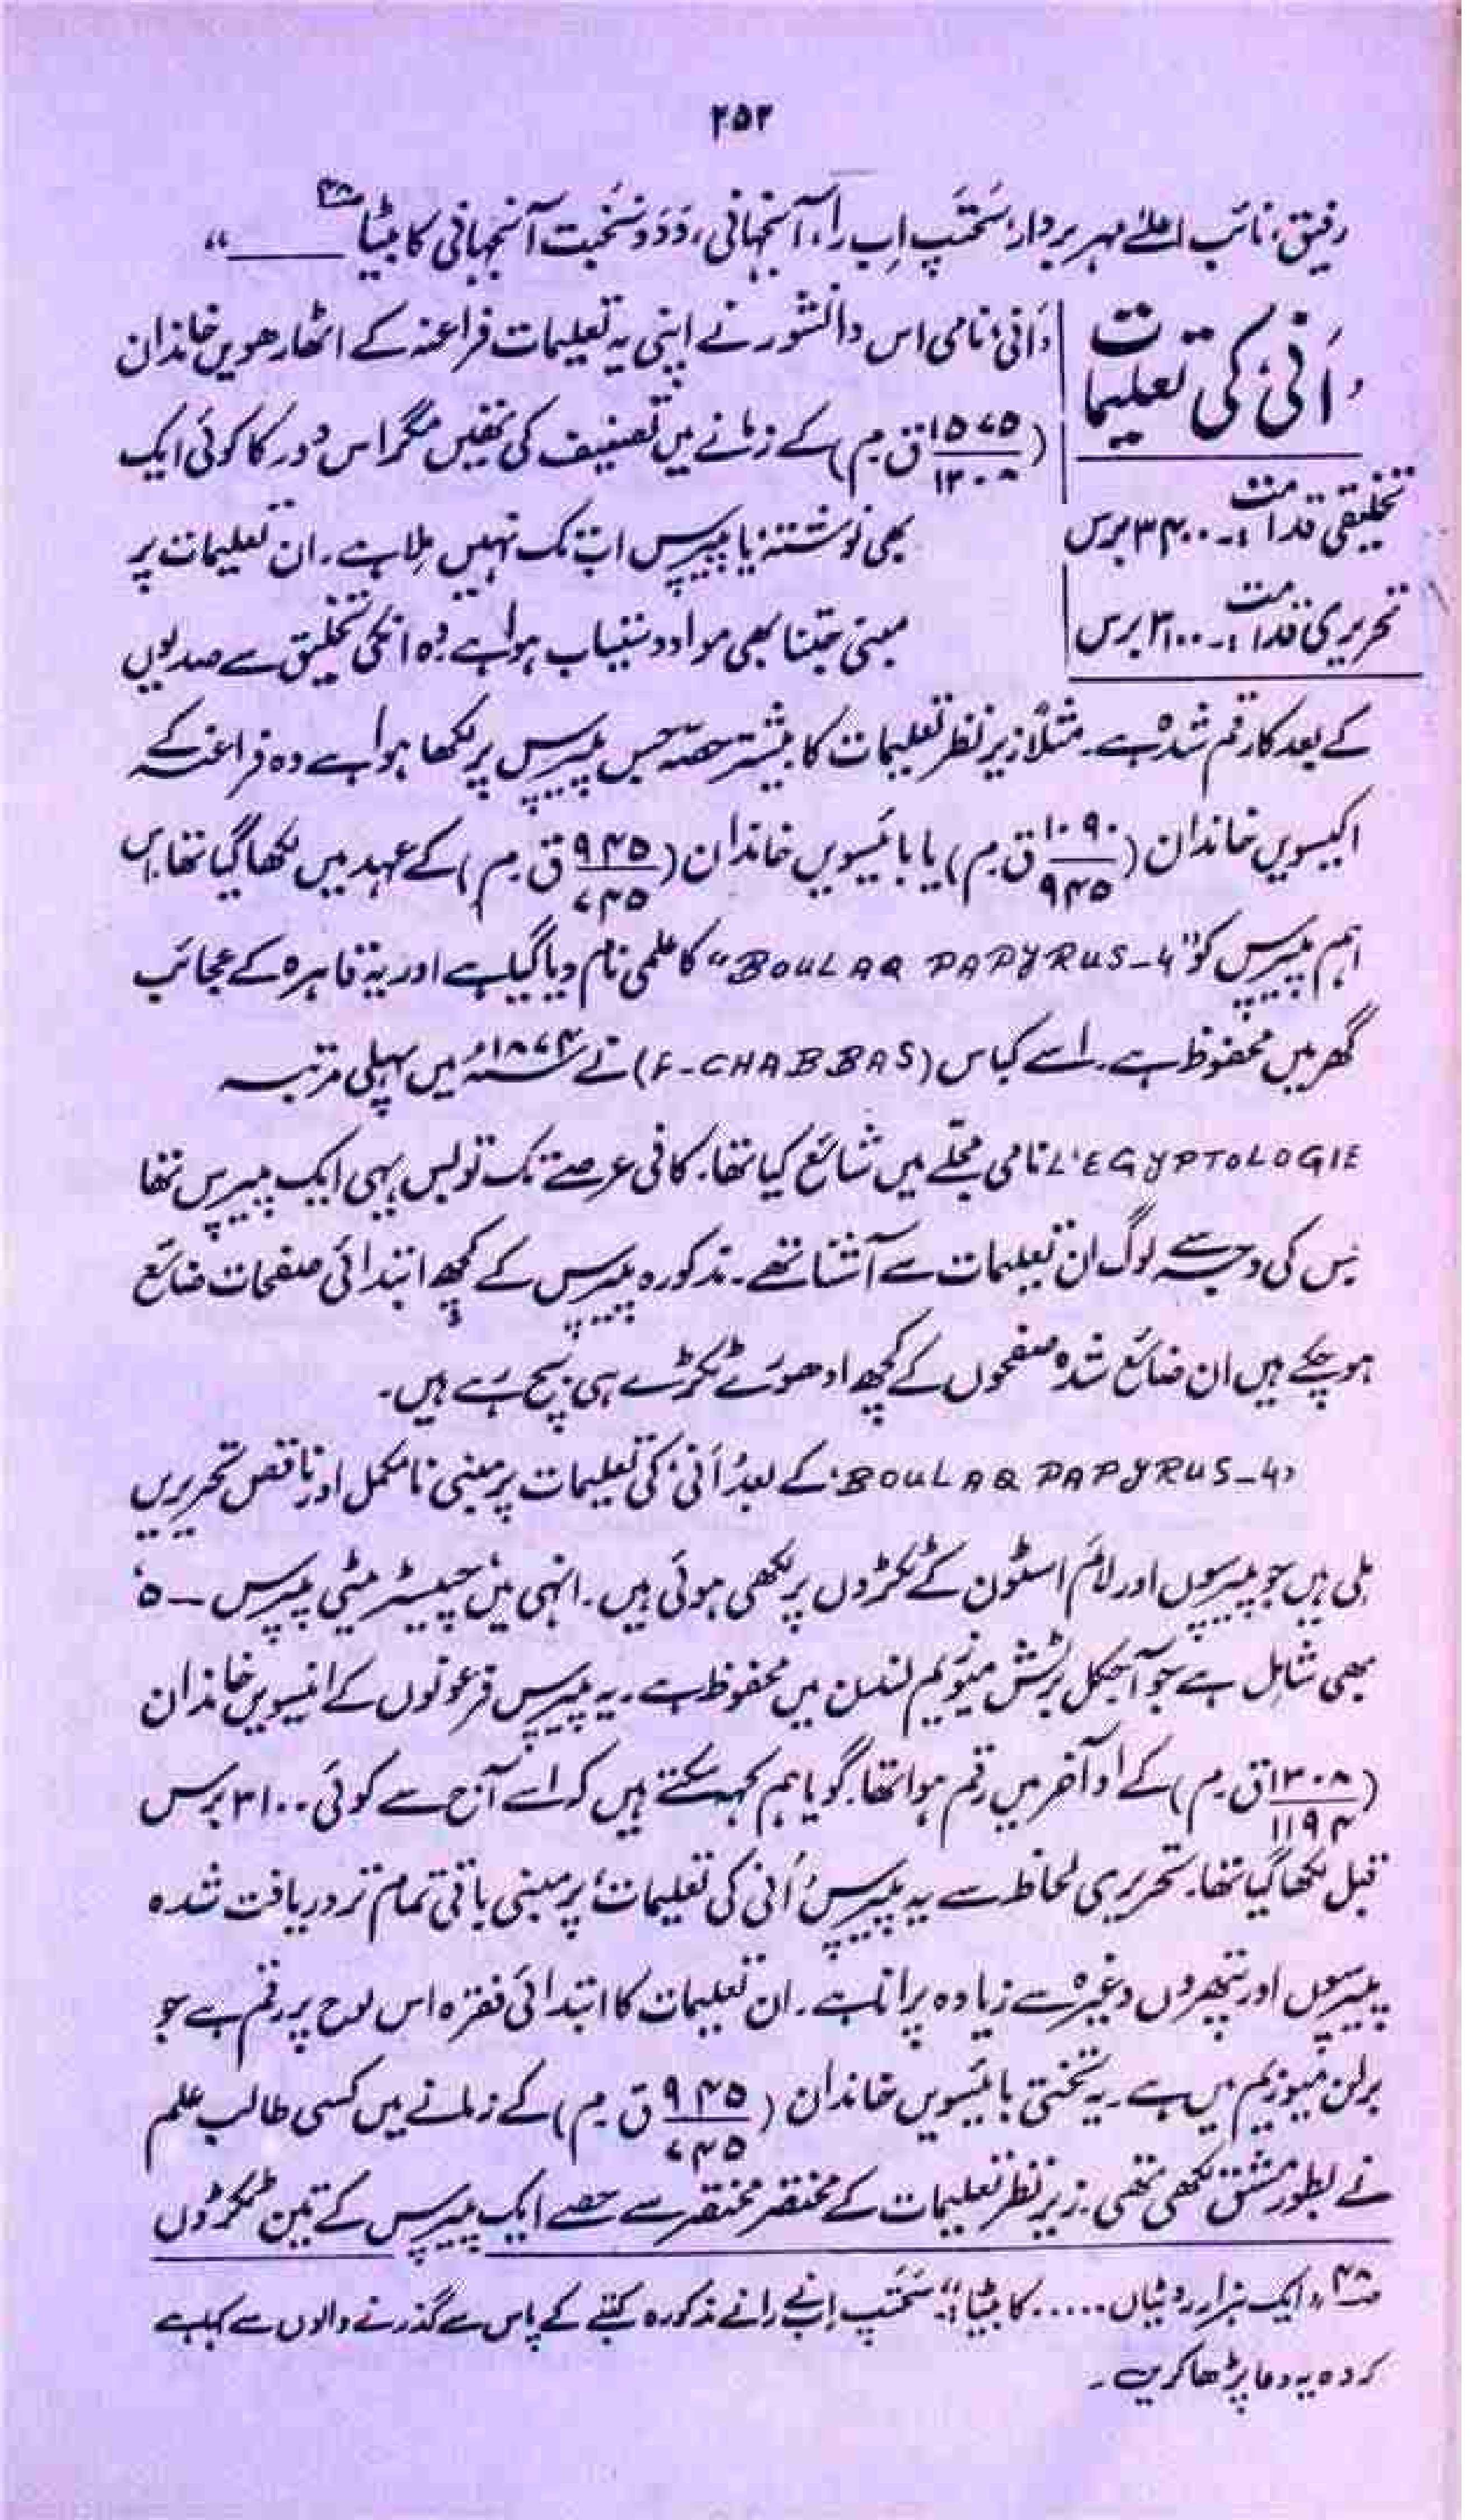 ۲۵۲
رفیق، نائب اعلےٰ مہر بردار، سَحتَپ اِب را، آنجہانی، دَدَو سَخبت آنجہانی کا بیٹا ؂۴۸ ــــــ “
’اَنی‘ کی تعلیمات
تخلیقی قدامت:۔ ۳۴۰۰ برس
تحریری قدامت:۔ ۳۱۰۰ برس
’اَنی‘ نامی اس دانشور نے اپنی یہ تعلیمات فراعنہ کے اٹھارھویں خاندان
(۱۵۷۵/۱۳۰۸ ق۔م) کے زمانے میں تصنیف کی تھیں مگر اس دور کا کوئی ایک
بھی نوشتہ یا پیپرس اب تک نہیں ملا ہے۔ ان تعلیمات پر
مبنی جتنا بھی مواد دستیاب ہوا ہے وہ انکی تخلیق سے صدیوں
کے بعد کا رقم شدہ ہے۔ مثلاً زیر نظر تعلیمات کا بیشتر حصہ جس پیپرس پر لکھا ہوا ہے وہ فراعنہ کے
اکیسویں خاندان (۱۰۹۰/۹۴۵ ق۔م) یا بائیسویں خاندان (۹۴۵/۷۴۵ ق۔م) کے عہد میں لکھا گیا تھا۔ اس
اہم پیپرس کو ”BOULAQ PAPYRUS-4“ کا علمی نام دیا گیا ہے اور یہ قاہرہ کے عجائب
گھر میں محفوظ ہے۔ اسے کباس (F-CHABBAS) نے ۱۸۷۴ء میں پہلی مرتبہ
L'EGYPTOLOGIE نامی مجلّے میں شائع کیا تھا۔ کافی عرصے تک تو بس یہی ایک پیپرس تھا
جس کی وجہ سے لوگ ان تعلیمات سے آشنا تھے۔ مذکورہ پیپرس کے کچھ ابتدائی صفحات ضائع
ہو چکے ہیں ان ضائع شدہ صفحوں کے کچھ ادھورے ٹکڑے ہی بچ رہے ہیں۔
’BOULAQ PAPYRUS-4‘ کے بعد ’اَنی‘ کی تعلیمات پر مبنی نامکمل اور ناقص تحریریں
ملی ہیں جو پیپرسوں اور لائم اسٹون کے ٹکڑوں پر لکھی ہوئی ہیں۔ انہی میں ’چیسٹر بیٹی پیپرس ــ ۵‘
بھی شامل ہے جو آجکل برٹش میوزیم لندن میں محفوظ ہے۔ یہ پیپرس فرعونوں کے انیسویں خاندان
(۱۳۰۸/۱۱۹۴ ق۔م) کے اوآخر میں رقم ہوا تھا۔ گویا ہم کہہ سکتے ہیں کہ اسے آج سے کوئی ۳۱۰۰ برس
قبل لکھا گیا تھا۔ تحریری لحاظ سے یہ پیپرس ’اَنی کی تعلیمات‘ پر مبنی باقی تمام تر دریافت شدہ
پیپرسوں اور پتھروں وغیرہ سے زیادہ پرانا ہے۔ ان تعلیمات کا ابتدائی فقرہ اس لوح پر رقم ہے جو
برلن میوزیم میں ہے۔ یہ تختی بائیسویں خاندان (۹۴۵/۷۴۵ ق۔م) کے زمانے میں کسی طالب علم
نے بطور مشق لکھی تھی۔ زیر نظر تعلیمات کے مختصر مختصر سے حصے ایک پیپرس کے تین ٹکڑوں
؂۴۸ ”ایک ہزار روٹیاں ...... کا بیٹا“:۔ سَحتَپ اِب نے را نے مذکورہ کتبے کے پاس سے گذرنے والوں سے کہا ہے
کہ وہ یہ دعا پڑھا کریں۔